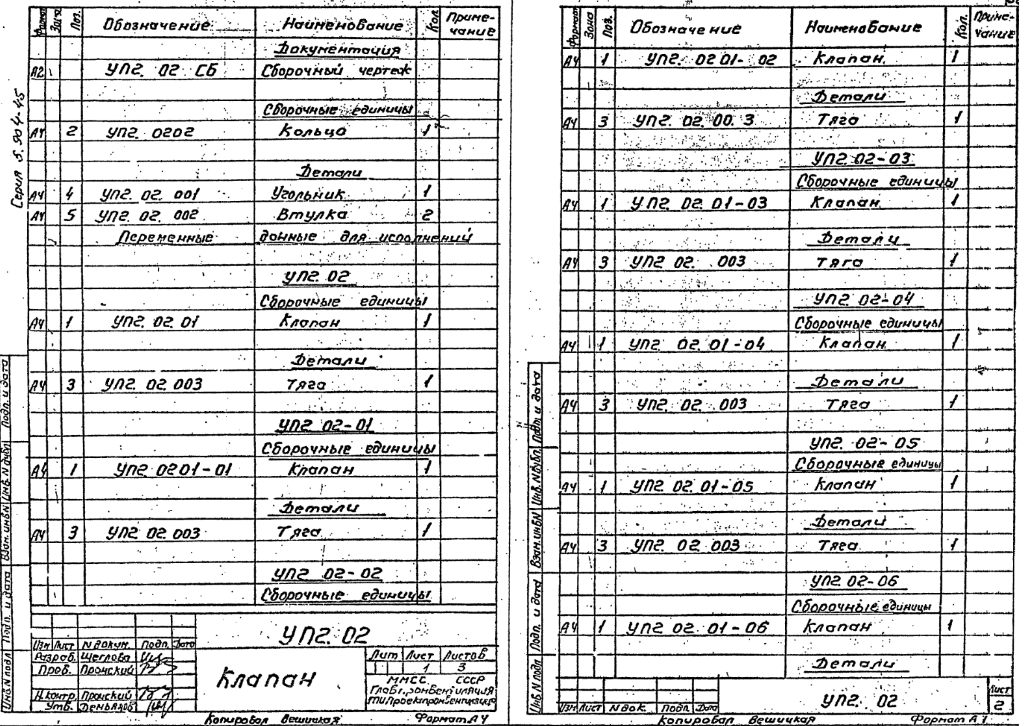 Серия 5.904-45
Формат Зона Поз. Обозначение Наименование Кол. Примечание
Документация
А2 УП2. 02 СБ Сборочный чертеж
Сборочные единицы
А4 2 УП2. 0202 Кольцо 1
Детали
А4 4 УП2. 02. 001 Угольник 1
А4 5 УП2. 02. 002 Втулка 2
Переменные данные для исполнений
УП2 02
Сборочные единицы
А4 1 УП2. 02. 01 Клапан 1
Детали
А4 3 УП2. 02 003 Тяга 1
УП2 02-01
Сборочные единицы
А4 1 УП2 0201-01 Клапан 1
Детали
А4 3 УП2 02. 003 Тяга 1
УП2 02-02
Сборочные единицы
УП2. 02
Изм Лист N докум. Подп. Дата
Разраб. Щеглова
Пров. Пронский
Н.контр. Пронский
Утв.
Клапан
Лит Лист Листов
1 3
ММСС СССР
Копировал Вешицкая Формат А4
Инв. N подл Подп. и дата Взам. инв N Инв. N дубл Подп. и дата
Формат Зона Поз. Обозначение Наименование Кол. Примечание
А4 1 УП2. 0201-02 Клапан 1
Детали
А4 3 УП2. 02. 00. 3 Тяга 1
УП2 02-03
Сборочные единицы
А4 1 УП2 02. 01-03 Клапан 1
Детали
А4 3 УП2 02. 003 Тяга 1
УП2 02-04
Сборочные единицы
А4 1 УП2. 02. 01-04 Клапан 1
Детали
А4 3 УП2. 02. 003 Тяга 1
УП2. 02-05
Сборочные единицы
А4 1 УП2 02. 01-05 Клапан 1
Детали
А4 3 УП2. 02. 003 Тяга 1
УП2 02-06
Сборочные единицы
А4 1 УП2 02. 01-06 Клапан 1
Детали
Изм Лист N док. Подп. Дата
УП2. 02
Лист
2
Копировал Вешицкая Формат А4
Инв. N подл Подп. и дата Взам. инв N Инв. N дубл Подп. и дата